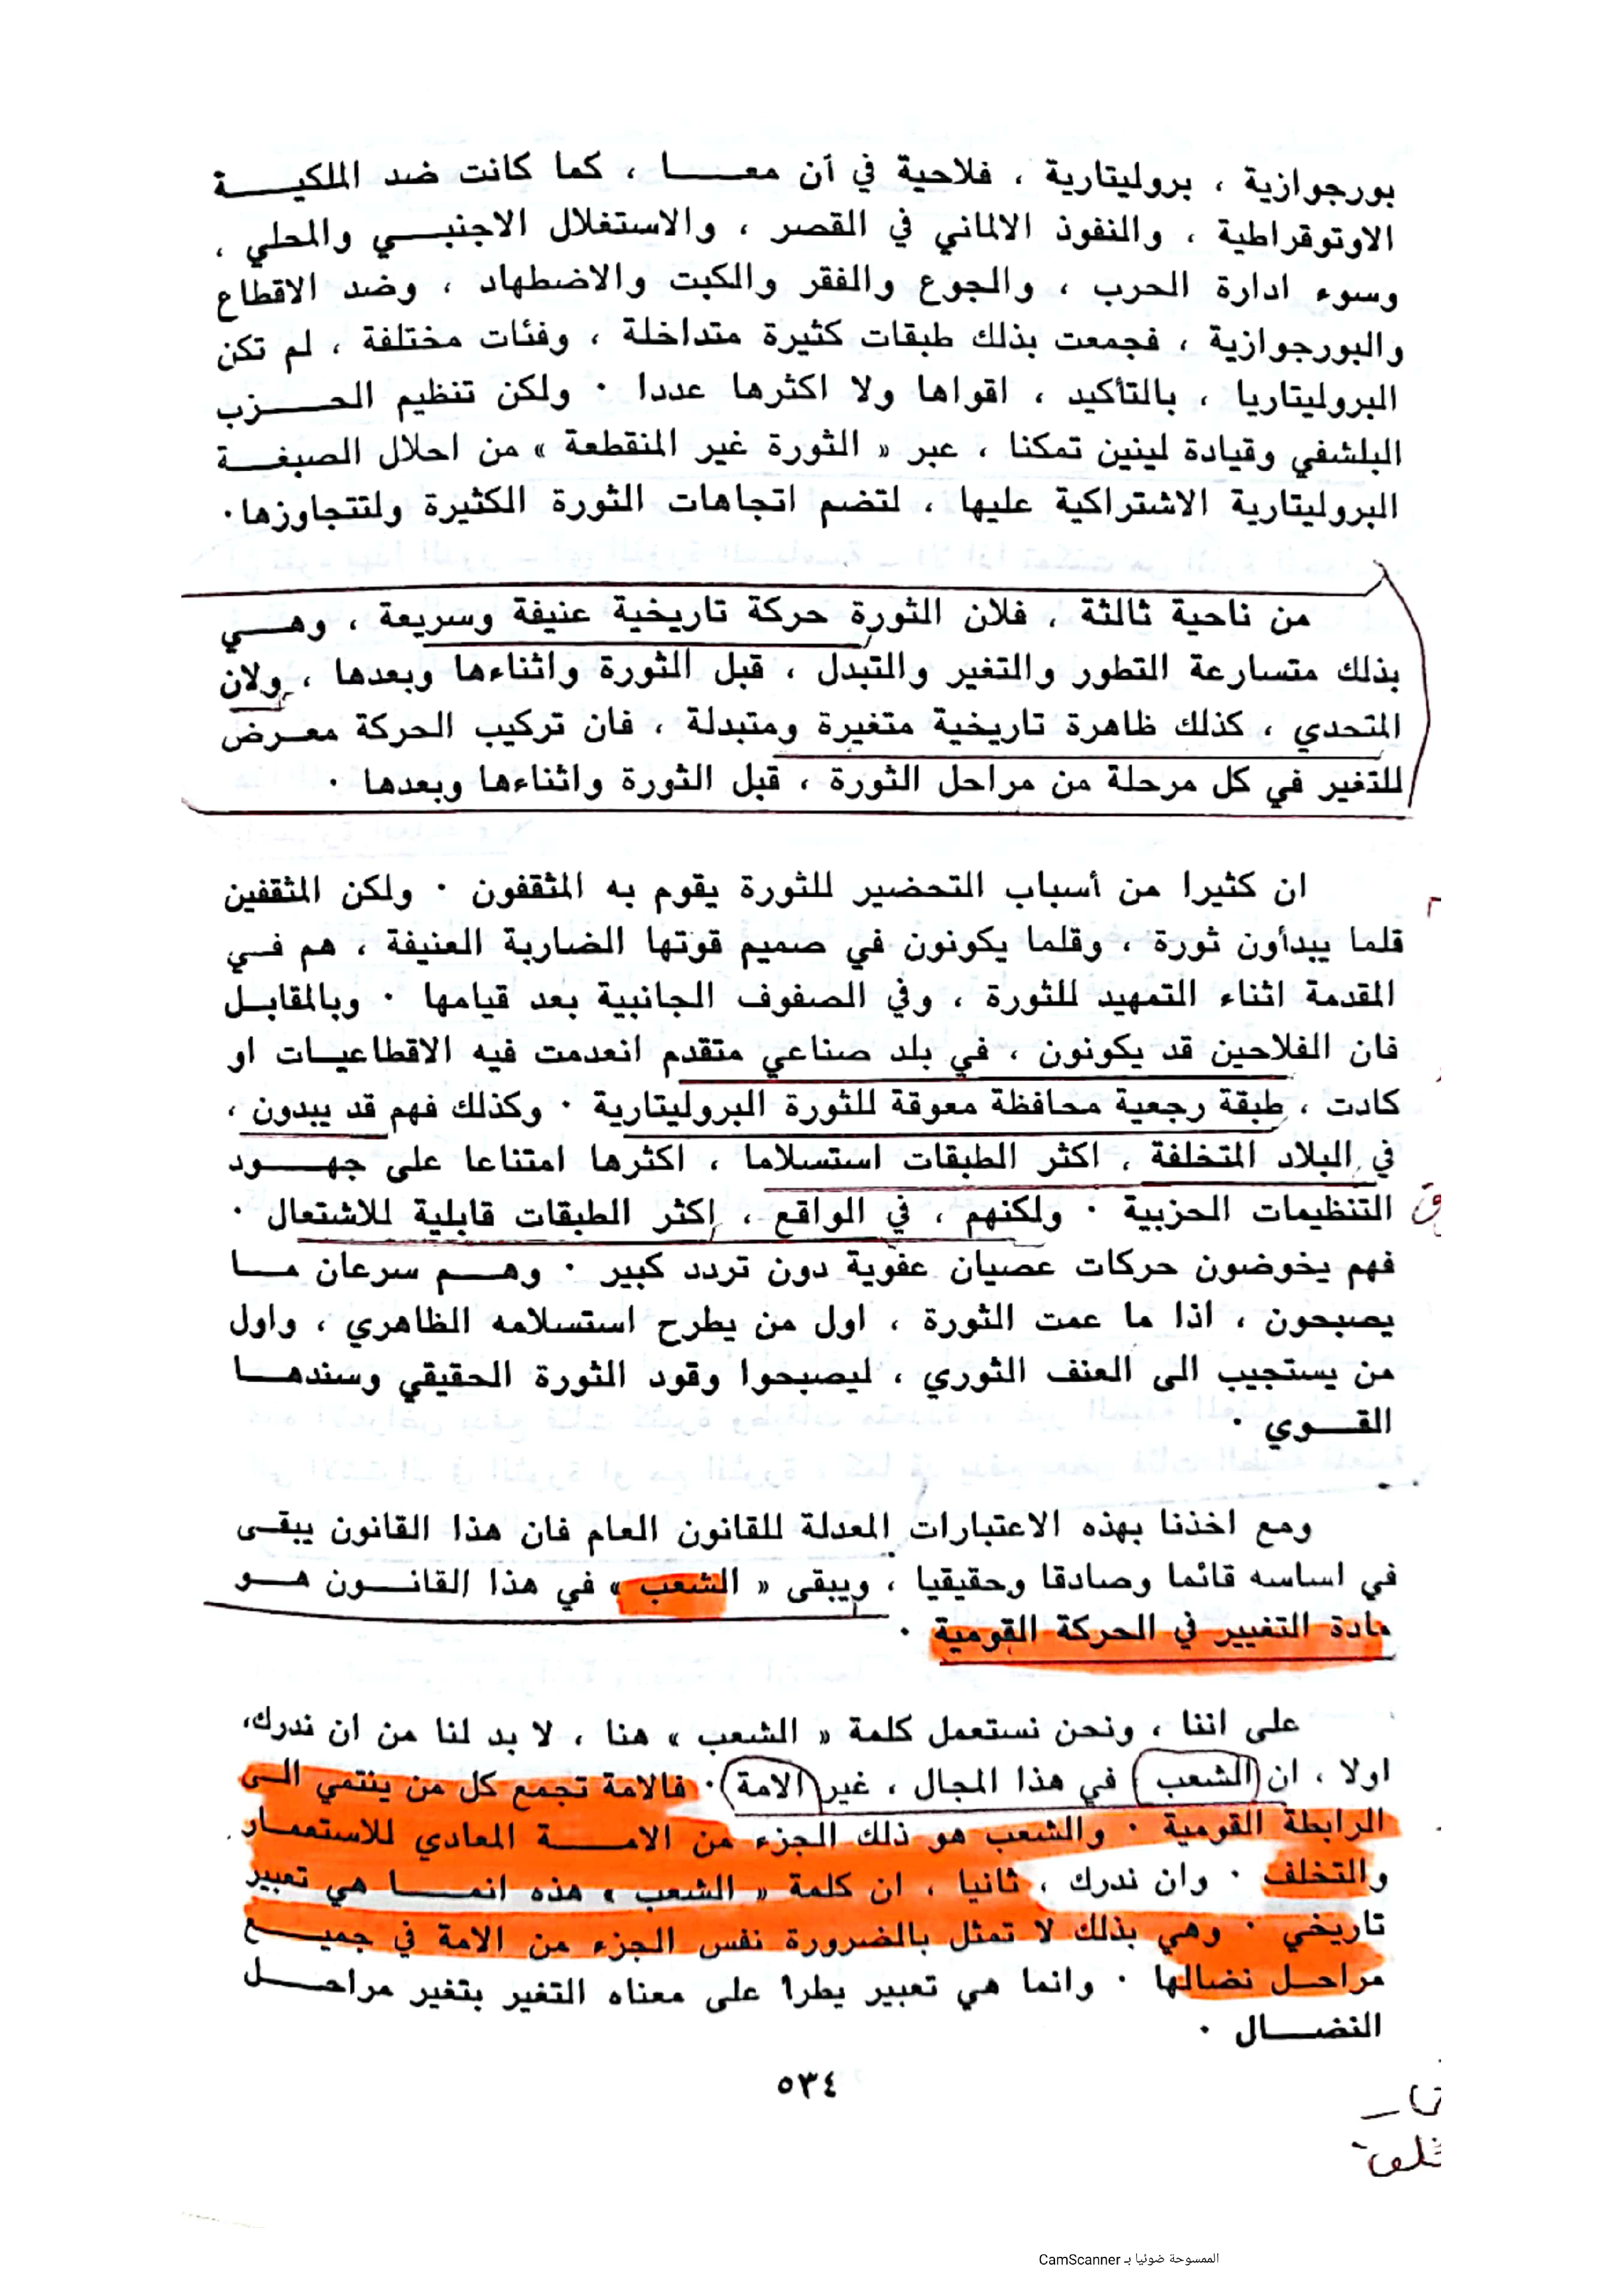 بورجوازية ، بروليتارية ، فلاحية في آن معا ، كما كانت ضد الملكية
الاوتوقراطية ، والنفوذ الالماني في القصر ، والاستغلال الاجنبي والمحلي ،
وسوء ادارة الحرب ، والجوع والفقر والكبت والاضطهاد ، وضد الاقطاع
والبورجوازية ، فجمعت بذلك طبقات كثيرة متداخلة ، وفئات مختلفة ، لم تكن
البروليتاريا ، بالتأكيد ، اقواها ولا اكثرها عددا ٠ ولكن تنظيم الحزب
البلشفي وقيادة لينين تمكنا ، عبر « الثورة غير المنقطعة » من احلال الصبغة
البروليتارية الاشتراكية عليها ، لتضم اتجاهات الثورة الكثيرة ولتتجاوزها٠
من ناحية ثالثة ، فلان الثورة حركة تاريخية عنيفة وسريعة ، وهي
بذلك متسارعة التطور والتغير والتبدل ، قبل الثورة واثناءها وبعدها ، ولان
المتحدي ، كذلك ظاهرة تاريخية متغيرة ومتبدلة ، فان تركيب الحركة معرض
للتغير في كل مرحلة من مراحل الثورة ، قبل الثورة واثناءها وبعدها ٠
ان كثيرا من أسباب التحضير للثورة يقوم به المثقفون ٠ ولكن المثقفين
قلما يبدأون ثورة ، وقلما يكونون في صميم قوتها الضاربة العنيفة ، هم في
المقدمة اثناء التمهيد للثورة ، وفي الصفوف الجانبية بعد قيامها ٠ وبالمقابل
فان الفلاحين قد يكونون ، في بلد صناعي متقدم انعدمت فيه الاقطاعيات او
كادت ، طبقة رجعية محافظة معوقة للثورة البروليتارية ٠ وكذلك فهم قد يبدون ،
في البلاد المتخلفة ، اكثر الطبقات استسلاما ، اكثرها امتناعا على جهود
التنظيمات الحزبية ٠ ولكنهم ، في الواقع ، اكثر الطبقات قابلية للاشتعال ٠
فهم يخوضون حركات عصيان عفوية دون تردد كبير ٠ وهم سرعان ما
يصبحون ، اذا ما عمت الثورة ، اول من يطرح استسلامه الظاهري ، واول
من يستجيب الى العنف الثوري ، ليصبحوا وقود الثورة الحقيقي وسندها
القوي ٠
ومع اخذنا بهذه الاعتبارات المعدلة للقانون العام فان هذا القانون يبقى
في اساسه قائما وصادقا وحقيقيا ، ويبقى « الشعب » في هذا القانون هو
مادة التغيير في الحركة القومية ٠
على اننا ، ونحن نستعمل كلمة « الشعب » هنا ، لا بد لنا من ان ندرك،
اولا ، ان الشعب في هذا المجال ، غير الامة ٠ فالامة تجمع كل من ينتمي الى
الرابطة القومية ٠ والشعب هو ذلك الجزء من الامة المعادي للاستعمار
والتخلف ٠ وان ندرك ، ثانيا ، ان كلمة « الشعب » هذه انما هي تعبير
تاريخي ٠ وهي بذلك لا تمثل بالضرورة نفس الجزء من الامة في جميع
مراحل نضالها ٠ وانما هي تعبير يطرأ على معناه التغير بتغير مراحل
النضال ٠
٥٣٤
الممسوحة ضوئيا بـ CamScanner